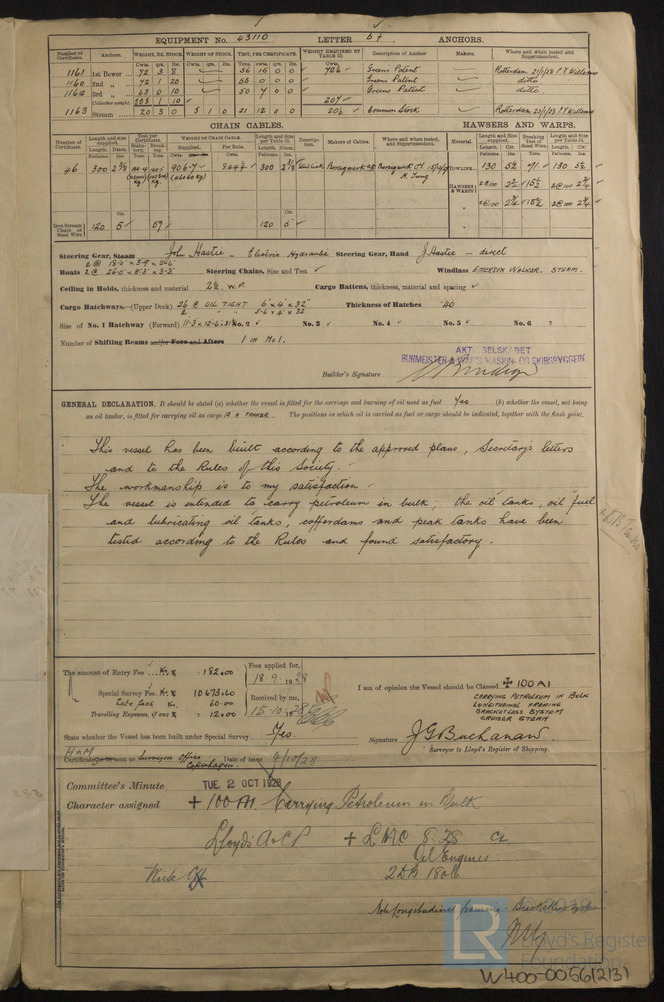 EQUIPMENT No. 43110 LETTER b† ANCHORS.
Number of Certificate. Anchors. WEIGHT, EX. STOCK. WEIGHT OF STOCK. TEST, PER CERTIFICATE. WEIGHT REQUIRED BY TABLE 31. Description of Anchor Makers. Where and when tested and Superintendent.
Cwts. qrs. lbs. Cwts. qrs. lbs. Cwts. Cwts.
1161 1st Bower 72 3 8 56 16 0 0 72½ Greens Patent Rotterdam
1160 2nd „ 72 1 20 Greens Patent ditto
1162 3rd „ 63 0 10 50 7 0 0 Greens Patent ditto
Collective weight 208 1 10 207
1163 Stream 20 3 0 5 1 0 21 12 0 0 20½ Common Stock Rotterdam
CHAIN CABLES. HAWSERS AND WARPS.
Number of Certificate. Length and size supplied. Test per Certificate. WEIGHT OF CHAIN CABLE. Length and size per Table 31. Description. Makers of Cables. Where and when tested, and Superintendent. Material. Length and size supplied. Breaking Test of Steel Wire. Length and size per Table 31.
46 300 2⅜ 300 2⅜ Stud Link TOWLINE 130 5½ 130 5½
HAWSERS & WARPS 2@100 2¾ 15½ 2@100 2¾
2@100 2¾ 15½ 2@100 2¾
Iron Stream Chain or Steel Wire 120 5 59 120 5
Steering Gear, Steam John Hastie - Electric Hydraulic Steering Gear, Hand J Hastie - direct
Boats 2 @ 26-0 x 8-3 x 3-3 Steering Chains, Size and Test Windlass EMERSON WALKER, STEAM.
Ceiling in Holds, thickness and material 2½ W.P. Cargo Battens, thickness, material and spacing
Cargo Hatchways.—(Upper Deck) 26 @ OIL TIGHT 6' x 4' x 32" Thickness of Hatches .40
Size of No. 1 Hatchway (Forward) No. 2 No. 3 No. 4 No. 5 No. 6
Number of Shifting Beams and/or Fore and Afters 1 in No 1.
AKTIESELSKABET
BURMEISTER & WAIN'S MASKIN- OG SKIBSBYGGERI
Builder's Signature
GENERAL DECLARATION. It should be stated (a) whether the vessel is fitted for the carriage and burning of oil used as fuel Yes (b) whether the vessel, not being
an oil tanker, is fitted for carrying oil as cargo IS A TANKER The positions in which oil is carried as fuel or cargo should be indicated, together with the flash point.
This vessel has been built according to the approved plans, Secretary's letters
and to the Rules of this Society.
The workmanship is to my satisfaction.
The vessel is intended to carry petroleum in bulk; the oil tanks, oil fuel
and lubricating oil tanks, cofferdams and peak tanks have been
tested according to the Rules and found satisfactory.
The amount of Entry Fee Kr. : 182.00 Fees applied for, 18.9.1928
Special Survey Fee Kr. : 10673.60 Received by me, 15.10.1928
Late Fees Kr. 60.00
Travelling Expenses, if any : 12.00
I am of opinion the Vessel should be Classed ✠ 100 A1
CARRYING PETROLEUM IN BULK
LONGITUDINAL FRAMING
BRACKETLESS SYSTEM
CRUISER STERN
State whether the Vessel has been built under Special Survey Yes Signature J G Buchanan.
Surveyor to Lloyd's Register of Shipping.
Certificate to be sent to Surveyors Office Copenhagen. Date of issue 4/10/28
Committee's Minute TUE. 2 OCT 1928
Character assigned + 100 A1. Carrying Petroleum in Bulk
Lloyd's A & CP + LMC 8.28 CL
Oil Engines
2 DB 180 lb
Note Longitudinal framing - Bracketless system
Lloyd's Register
Foundation
W400-0056(2/3)